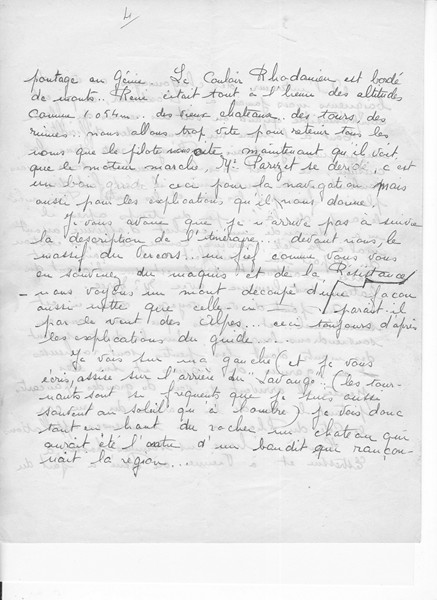 4
pontage au Génie. Le Couloir Rhodanien est bordé
de monts.. René était tout à l'heure des altitudes
comme 1054m.. des vieux chateaux.. des tours, des
ruines.. nous allons trop vite pour retenir tous les
noms que le pilote nous cite, maintenant qu'il voit
que le moteur marche, Mr Parizet se deride, c'est
un bon guide! ceci pour la navigation mais
aussi pour les explications qu'il nous donne..
Je vous avoue que je n'arrive pas à suivre
la description de l'itinéraire... devant nous, le
massif du Vercors.. un fief comme vous vous
en souvenez du maquis et de la Résistance
- nous voyons un mont découpé d'une façon
aussi nette que celle-ci - parait-il
par le vent des Alpes... ceci toujours d'après
les explications du guide...
Je vois sur ma gauche (et je vous
écris, assise sur l'arrière du "Lavauge" (les tour-
nants sont si fréquents que je suis aussi
souvent au soleil qu'à l'ombre) je vois donc
tout en haut du rocher un chateau qui
aurait été l'antre d'un bandit qui rançon-
nait la région...